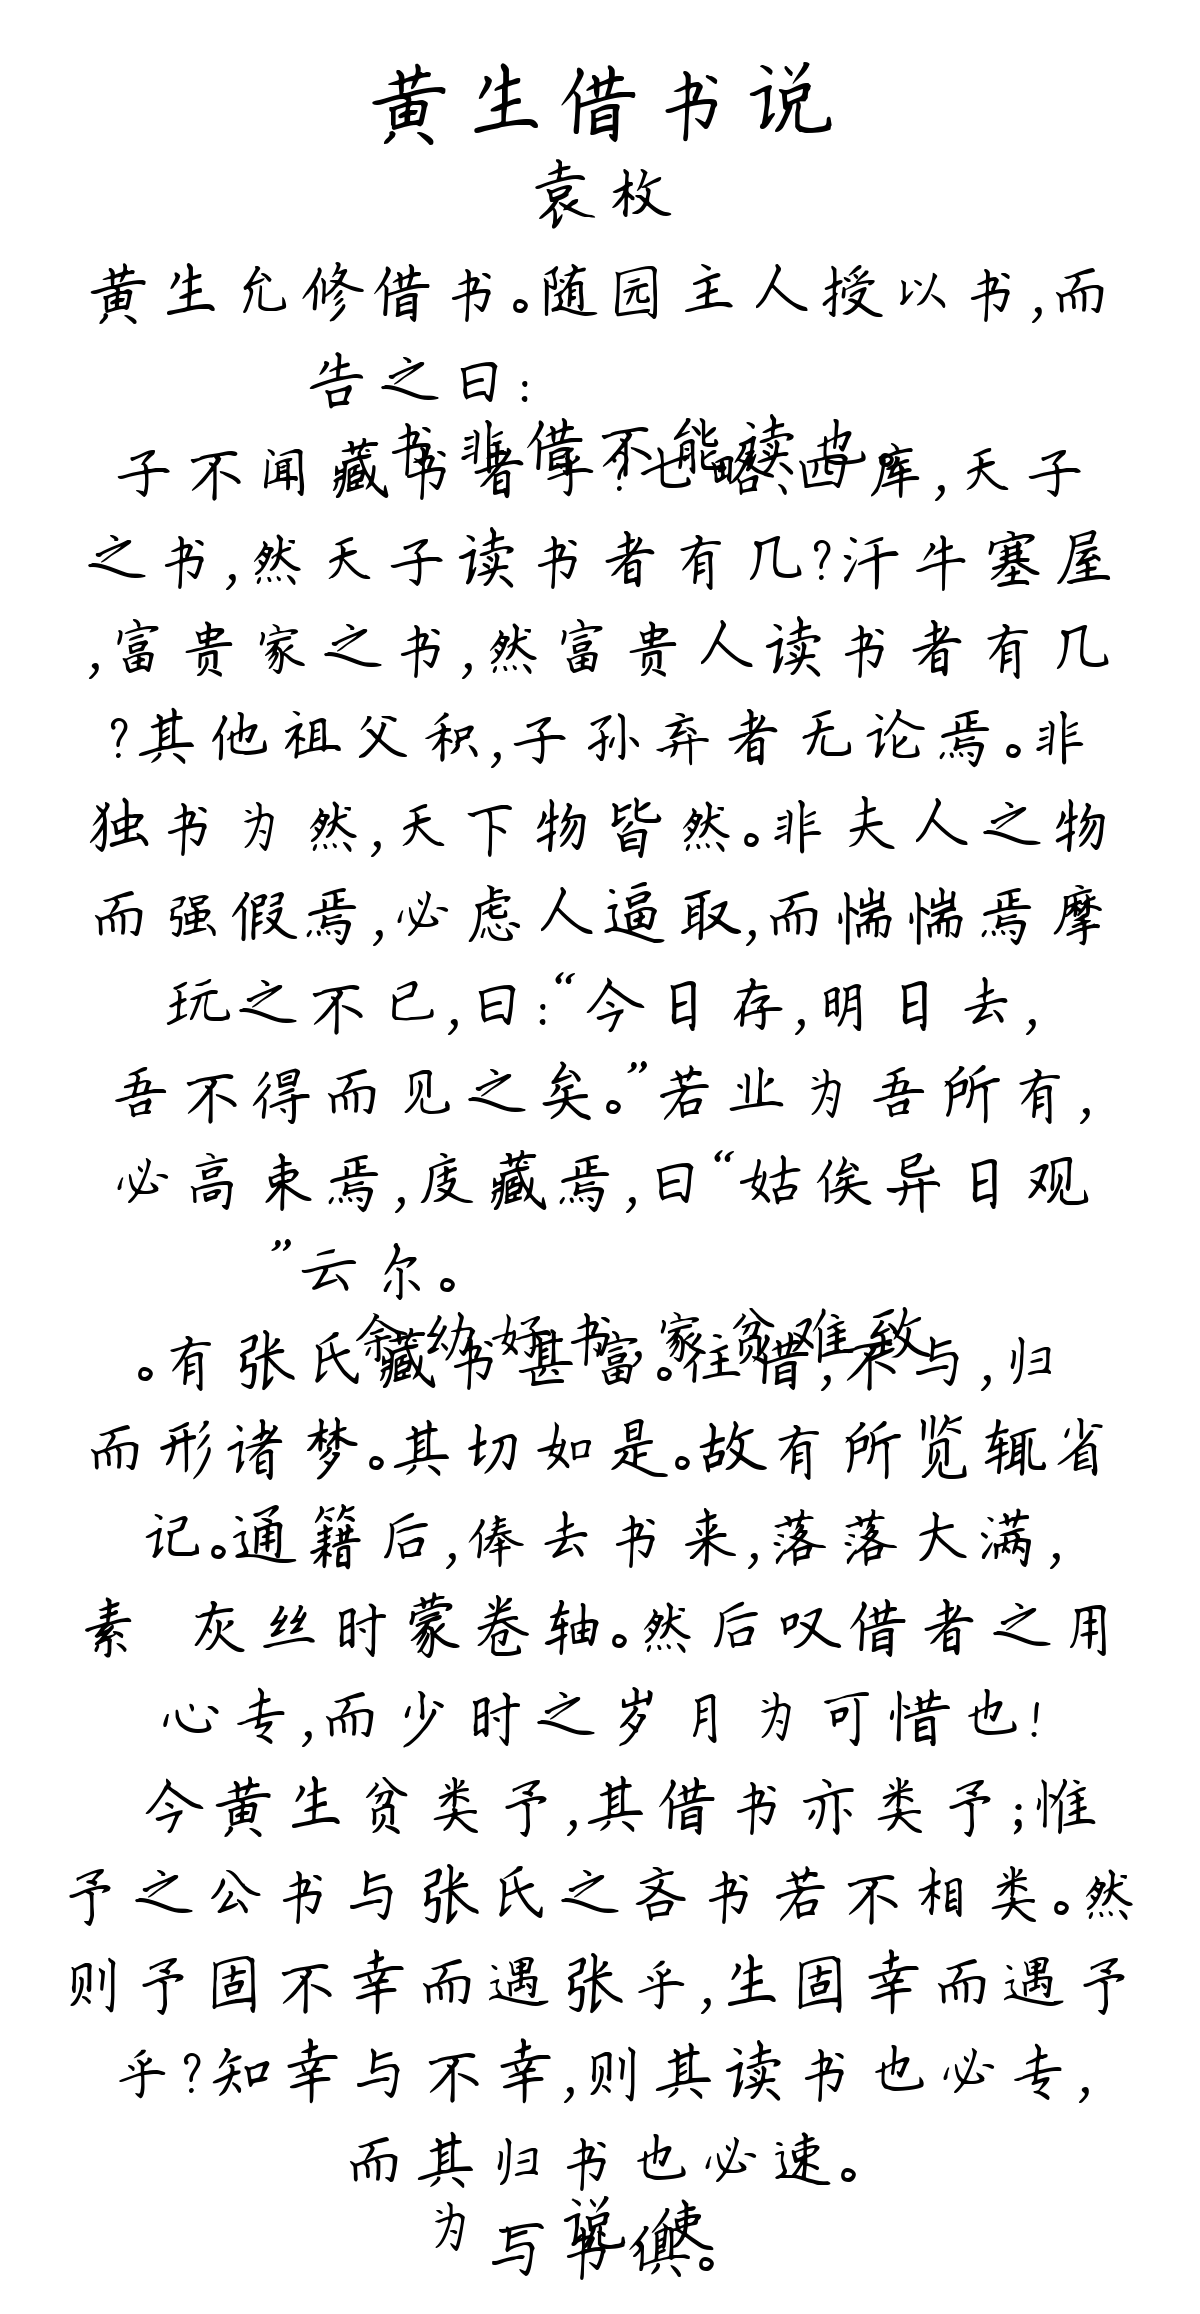 黄生借书说
袁枚
黄生允修借书。随园主人授以书,而
告之曰:
书非借不能读也。
子不闻藏书者乎?七略、四库,天子
之书,然天子读书者有几?汗牛塞屋
,富贵家之书,然富贵人读书者有几
?其他祖父积,子孙弃者无论焉。非
独书为然,天下物皆然。非夫人之物
而强假焉,必虑人逼取,而惴惴焉摩
玩之不已,曰:“今日存,明日去,
吾不得而见之矣。”若业为吾所有,
必高束焉,庋藏焉,曰“姑俟异日观
”云尔。
余幼好书,家贫难致
。有张氏藏书甚富。往借,不与,归
而形诸梦。其切如是。故有所览辄省
记。通籍后,俸去书来,落落大满,
素 灰丝时蒙卷轴。然后叹借者之用
心专,而少时之岁月为可惜也!
今黄生贫类予,其借书亦类予;惟
予之公书与张氏之吝书若不相类。然
则予固不幸而遇张乎,生固幸而遇予
乎?知幸与不幸,则其读书也必专,
而其归书也必速。
为 说,使
与书俱。